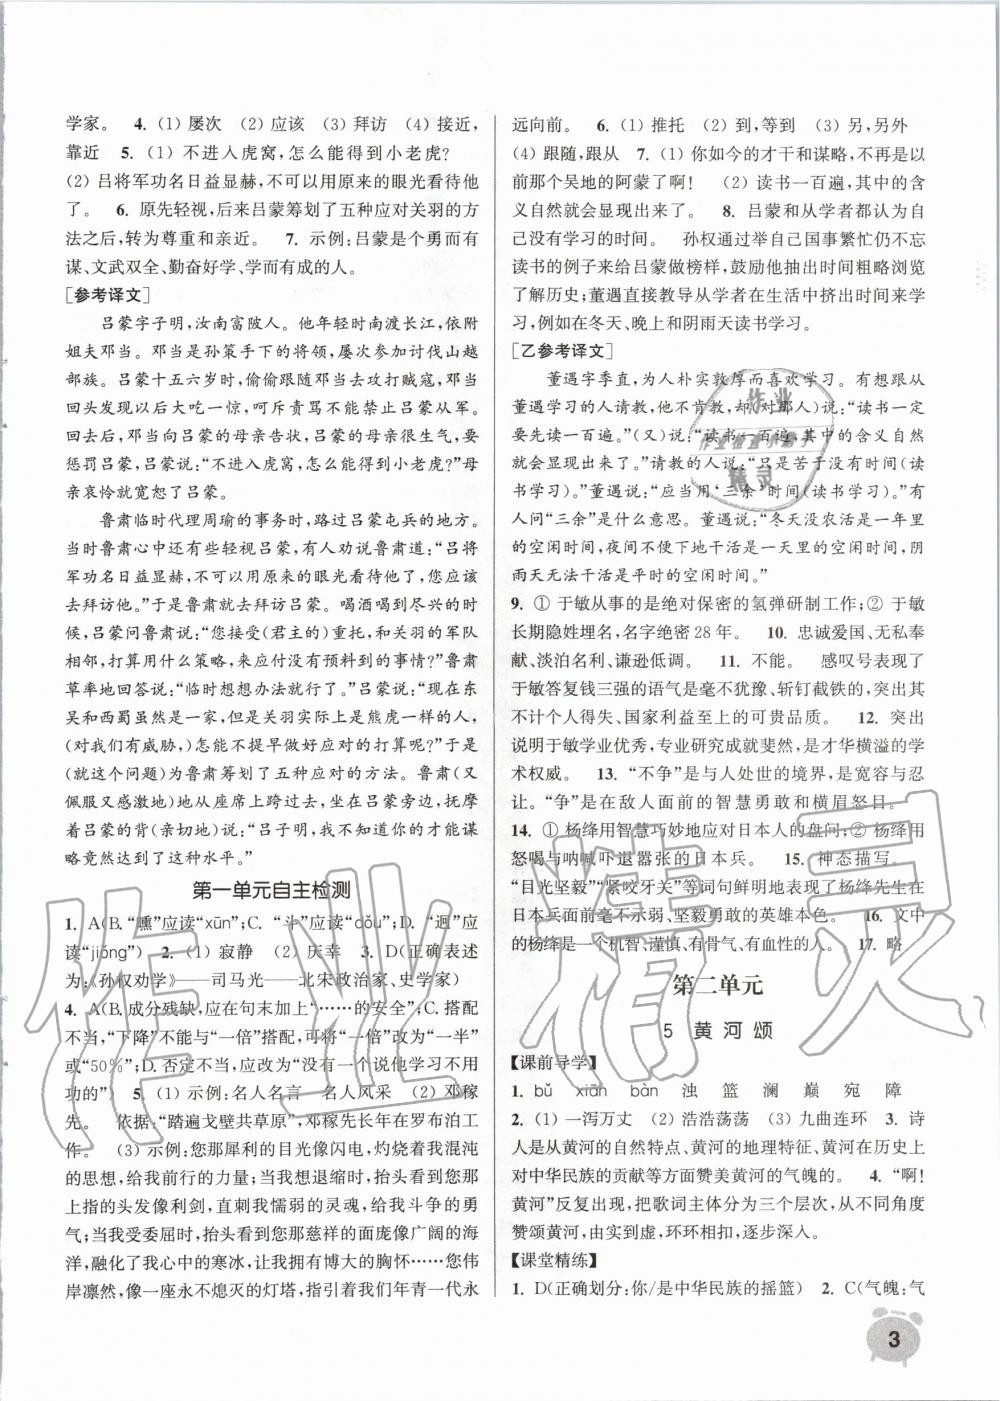 学家。 4. (1) 屡次 (2) 应该 (3) 拜访 (4) 接近,
靠近 5. (1) 不进入虎窝,怎么能得到小老虎?
(2) 吕将军功名日益显赫,不可以用原来的眼光看待他
了。 6. 原先轻视,后来吕蒙筹划了五种应对关羽的方
法之后,转为尊重和亲近。 7. 示例:吕蒙是个勇而有
谋、文武双全、勤奋好学、学而有成的人。
[参考译文]
吕蒙字子明,汝南富陂人。他年轻时南渡长江,依附
姐夫邓当。邓当是孙策手下的将领,屡次参加讨伐山越
部族。吕蒙十五六岁时,偷偷跟随邓当去攻打贼寇,邓当
回头发现以后大吃一惊,呵斥责骂不能禁止吕蒙从军。
回去后,邓当向吕蒙的母亲告状,吕蒙的母亲很生气,要
惩罚吕蒙,吕蒙说:“不进入虎窝,怎么能得到小老虎?”母
亲哀怜他就宽恕了吕蒙。
鲁肃临时代理周瑜的事务时,路过吕蒙屯兵的地方。
当时鲁肃心中还有些轻视吕蒙,有人劝说鲁肃道:“吕将
军功名日益显赫,不可以用原来的眼光看待他,您应该
去拜访他。”于是鲁肃就去拜访吕蒙。喝酒喝到尽兴的时
候,吕蒙问鲁肃说:“您接受(君主的)重托,和关羽的军队
相邻,打算用什么策略,来应付没有预料到的事情?”鲁肃
草率地回答说:“临时想想办法就行。”吕蒙说:“现在东
吴和西蜀虽然是一家,但是关羽实际上是熊虎一样的人,
(对我们有威胁,)怎能不提早做好应对的打算呢?”于是
(就这个问题)为鲁肃筹划了五种应对的方法。鲁肃(又
佩服又感激地)从座席上跨过去,坐在吕蒙旁边,抚摩
着吕蒙的背(亲切地)说:“吕子明,我不知道你的才能谋
略竟然达到了这种水平。”
第一单元自主检测
1. A(B. “熏”应读“xūn”;C. “斗”应读“dǒu”;D. “迥”应
读“jiǒng”) 2. (1) 寂静 (2) 庆幸 3. D(正确表述
为:《孙权劝学》——司马光——北宋政治家、史学家)
4. A(B.成分残缺,应在句末加上“……的安全”;C.搭配
不当,“下降”不能与“一倍”搭配,可将“一倍”改为“一半”
或“50%”;D.否定不当,应为“……这是他学习不用
功的”) 5. (1) 示例:名人名言 名人风采 (2) 邓稼
先。 依据:“踏遍戈壁共草原”,邓稼先长年在罗布泊工
作。 (3) 示例:您那犀利的目光像闪电,灼烧着我混沌
的思想,给我前行的力量;当我想退缩时,抬头看到您头
上指的头发像利剑,刺向我懦弱的灵魂,给我斗争的勇
气;当我受委屈时,抬头看到您那慈祥的面庞像广阔的海
洋,融化了我心中的寒冰,让我拥有博大的胸怀……您伟
岸凛然,像一座永不熄灭的灯塔,指引着我们年青一代永
远向前。 6. (1) 推托 (2) 到,等到 (3) 另,另外
(4) 跟随,跟从 7. (1) 你如今的才干和谋略,不再是以
前的那个吴地的阿蒙了啊! (2) 读书一百遍,其中的含
义自然就会显现出来了。 8. 吕蒙和从学者都认为自
己没有学习的时间。 孙权通过举自己国事繁忙仍不忘
读书的例子来给吕蒙做榜样,鼓励他抽出时间粗略浏览
了解历史;董遇直接教导从学者在生活中挤出时间来学
习,例如在冬天、晚上和阴雨天读书学习。
[乙参考译文]
董遇字季直,为人朴实敦厚而喜欢学习。有想跟从
董遇学习的人请教,他不肯教,却(对那人)说:“读书一定
要先读一百遍。”(又)说:“读书一百遍,其中的含义自然
就会显现出来了。”请教的人说:“只是苦于没有时间(读
书学习)。”董遇说:“应当用‘三余’时间(读书学习)。”有
人问“三余”是什么意思。董遇说:“冬天没农活是一年里
的空闲时间,夜间不便下地干活是一天里的空闲时间,阴
雨天无法干活是平时的空闲时间。”
9. ① 于敏从事的是绝对保密的氢弹研制工作;② 于敏
长期隐姓埋名,名字绝密 28 年。 10. 忠诚爱国、无私奉
献、淡泊名利、谦逊低调。 11. 不能。 感叹号表现出
于敏答复钱三强的语气是毫不犹豫、斩钉截铁的,突出其
不计个人得失、国家利益至上的可贵品质。 12. 突出
说明于敏学业优秀,专业研究成就斐然,是才华横溢的学
术权威。 13. “不争”是与人处世的境界,是宽容与忍
让。“争”是在敌人面前的智慧勇敢和横眉怒目。
14. ① 杨绛用智慧巧妙地应对日本人的盘问;② 杨绛用
怒喝与呐喊吓退嚣张的日本兵。 15. 神态描写。
“目光坚毅”“紧咬牙关”等词句鲜明地表现了杨绛先生在
日本兵面前毫不示弱、坚毅勇敢的英雄本色。 16. 文中
的杨绛是一个机智、谨慎、有骨气、有血性的人。 17. 略
第二单元
5 黄河颂
【课前导学】
1. bǔ xián bàn 浊 篮 澜 巅 宛 障
2. (1) 一泻万丈 (2) 浩浩荡荡 (3) 九曲连环 3. 诗
人是从黄河的自然特点、黄河的地理特征、黄河在历史上
对中华民族的贡献等方面赞美黄河的气魄的。 4. “啊!
黄河”反复出现,把歌词主体分为三个层次,从不同角度
赞颂黄河,由实到虚,环环相扣,逐步深入。
【课堂精练】
1. D(正确划分:你/是中华民族的摇篮) 2. C(气魄:气
3
作业
精灵
作业精灵